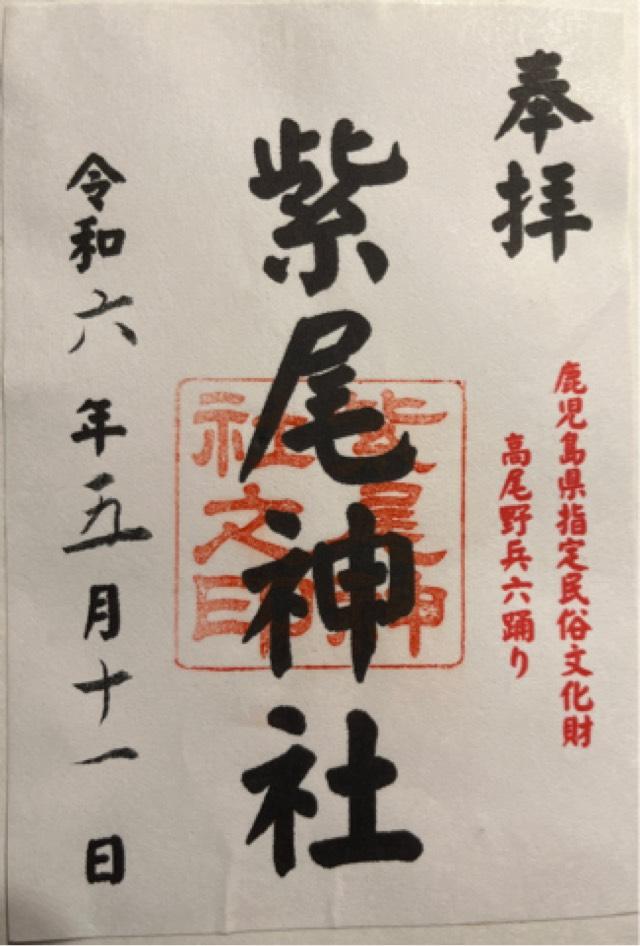 奉拝
鹿児島県指定民俗文化財
高尾野兵六踊り
紫尾神社
紫尾神
社之印
令和六年五月十一日